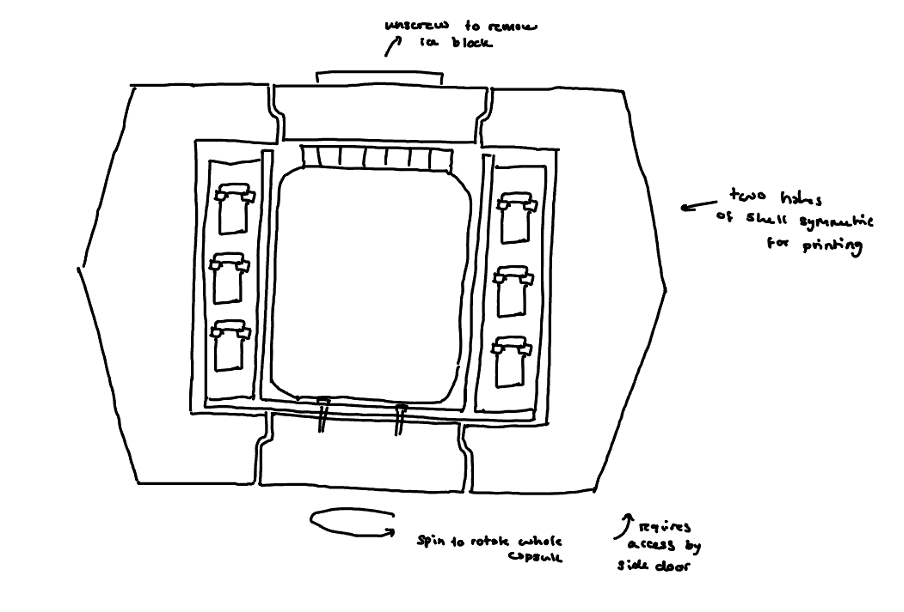 unscrew to remove
ice block
two halves
of shell symmetric
for printing
spin to rotate whole
capsule
requires
access by
side door